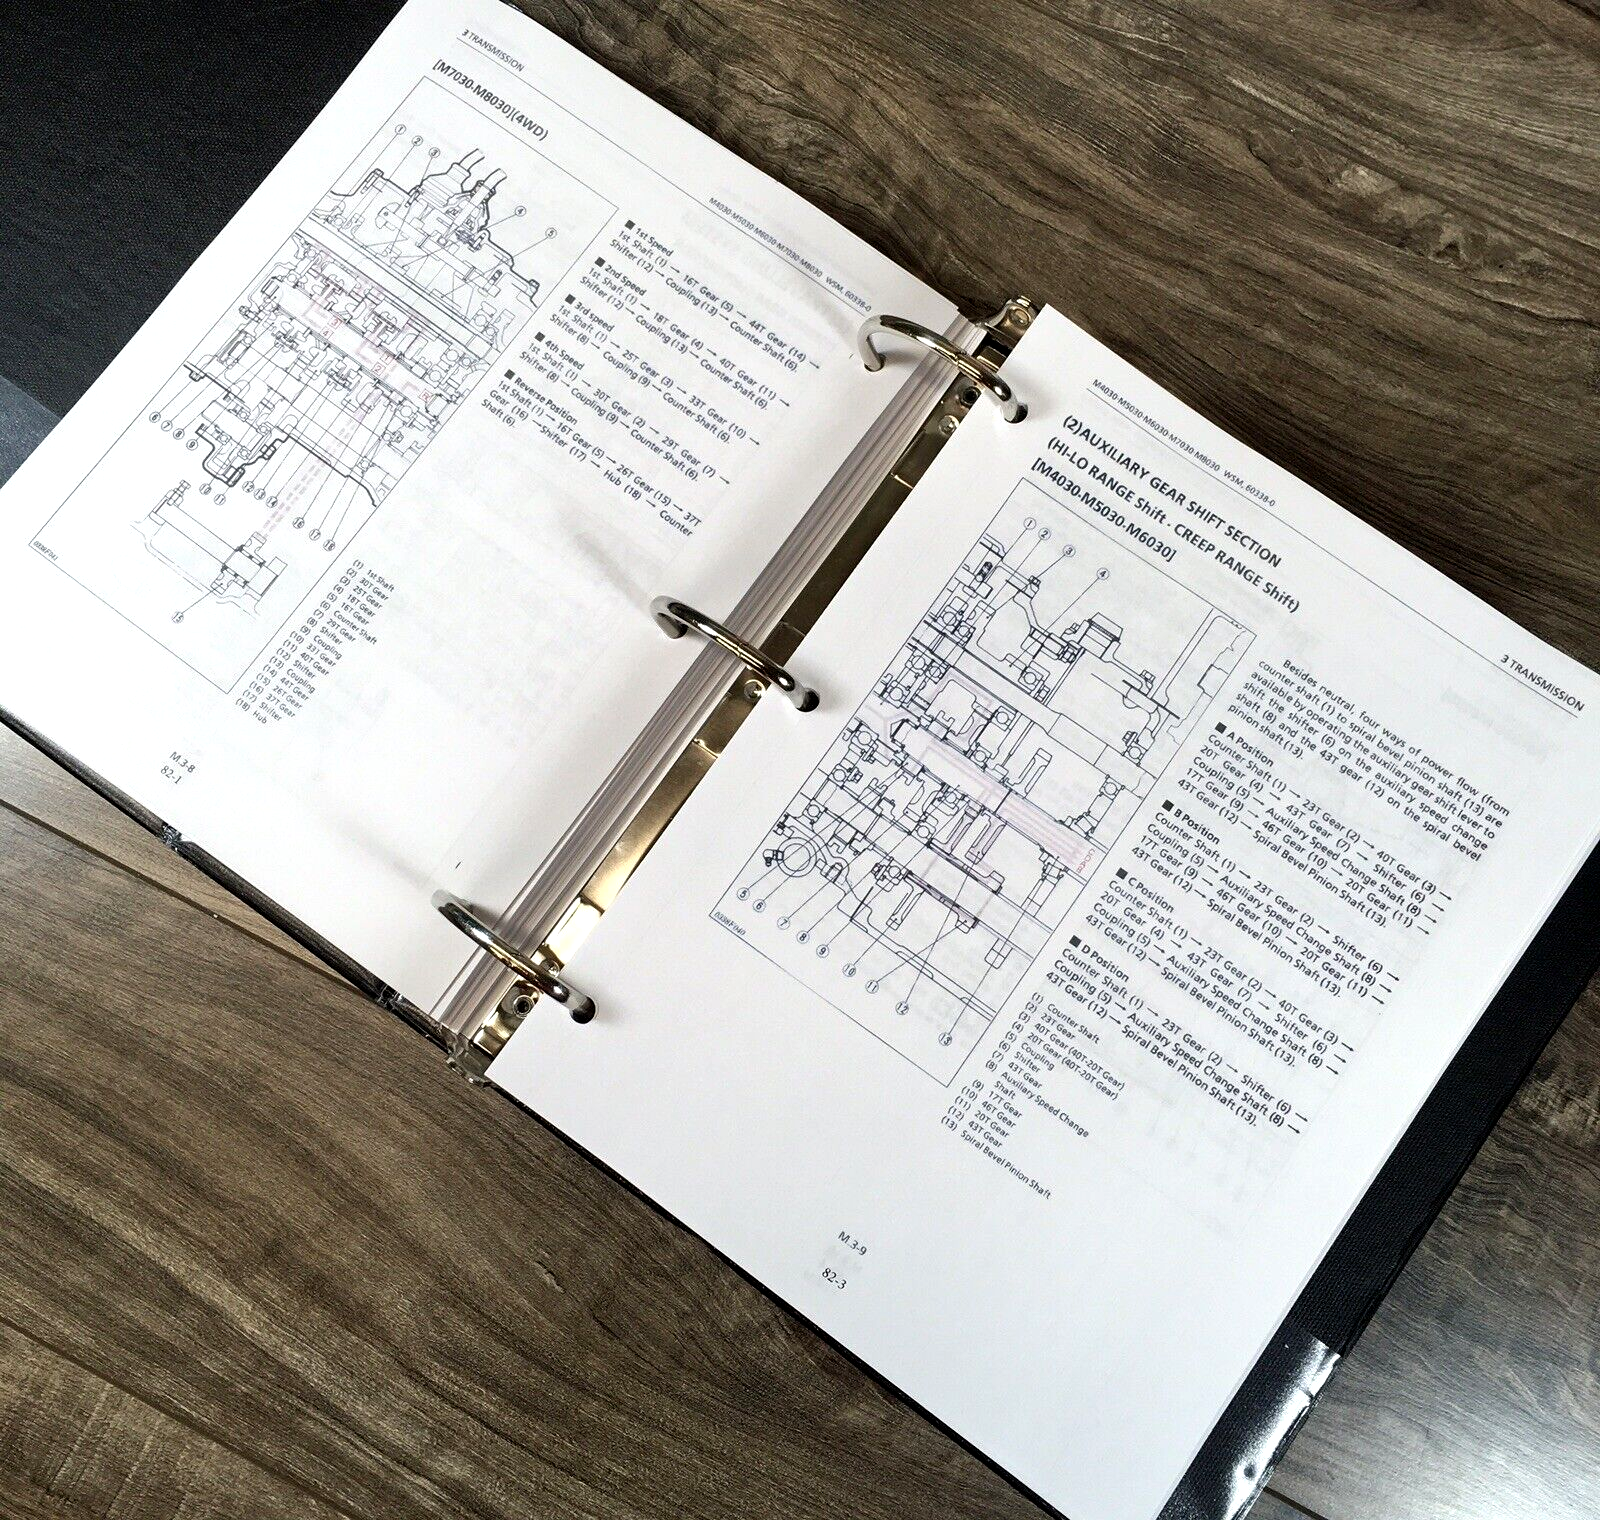 3 TRANSMISSION
M4030·M5030·M6030·M7030·M8030 WSM, 60338-0
[M7030·M8030](4WD)
0336F041
■ 1st Speed
1st Shaft (1) → 16T Gear (5) → 44T Gear (14) →
Shifter (12) → Coupling (13) → Counter Shaft (6).
■ 2nd Speed
1st Shaft (1) → 18T Gear (4) → 40T Gear (11) →
Shifter (12) → Coupling (13) → Counter Shaft (6).
■ 3rd speed
1st Shaft (1) → 25T Gear (3) → 33T Gear (10) →
Shifter (8) → Coupling (9) → Counter Shaft (6).
■ 4th Speed
1st Shaft (1) → 30T Gear (2) → 29T Gear (7) →
Shifter (8) → Coupling (9) → Counter Shaft (6).
■ Reverse Position
1st Shaft (1) → 16T Gear (5) → 26T Gear (15) → 37T
Gear (16) → Shifter (17) → Hub (18) → Counter
Shaft (6).
(1) 1st Shaft
(2) 30T Gear
(3) 25T Gear
(4) 18T Gear
(5) 16T Gear
(6) Counter Shaft
(7) 29T Gear
(8) Shifter
(9) Coupling
(10) 33T Gear
(11) 40T Gear
(12) Shifter
(13) Coupling
(14) 44T Gear
(15) 26T Gear
(16) 37T Gear
(17) Shifter
(18) Hub
M.3-8
82-1
M4030·M5030·M6030 M7030 M8030 WSM, 60338-0
3 TRANSMISSION
(2)AUXILIARY GEAR SHIFT SECTION
(HI-LO RANGE Shift · CREEP RANGE Shift)
[M4030·M5030·M6030]
0336F040
Besides neutral, four ways of power flow (from
counter shaft (1) to spiral bevel pinion shaft (13) are
available by operating the auxiliary gear shift lever to
shift the shifter (6) on the auxiliary speed change
shaft (8) and the 43T gear (12) on the spiral bevel
pinion shaft (13).
■ A Position
Counter Shaft (1) → 23T Gear (2) → 40T Gear (3) →
20T Gear (4) → 43T Gear (7) → Shifter (6) →
Coupling (5) → Auxiliary Speed Change Shaft (8) →
17T Gear (9) → 46T Gear (10) → 20T Gear (11) →
43T Gear (12) → Spiral Bevel Pinion Shaft (13).
■ B Position
Counter Shaft (1) → 23T Gear (2) → Shifter (6) →
Coupling (5) → Auxiliary Speed Change Shaft (8) →
17T Gear (9) → 46T Gear (10) → 20T Gear (11) →
43T Gear (12) → Spiral Bevel Pinion Shaft (13).
■ C Position
Counter Shaft (1) → 23T Gear (2) → 40T Gear (3) →
20T Gear (4) → 43T Gear (7) → Shifter (6) →
Coupling (5) → Auxiliary Speed Change Shaft (8) →
43T Gear (12) → Spiral Bevel Pinion Shaft (13).
■ D Position
Counter Shaft (1) → 23T Gear (2) → Shifter (6) →
Coupling (5) → Auxiliary Speed Change Shaft (8) →
43T Gear (12) → Spiral Bevel Pinion Shaft (13).
(1) Counter Shaft
(2) 23T Gear
(3) 40T Gear (40T-20T Gear)
(4) 20T Gear (40T-20T Gear)
(5) Coupling
(6) Shifter
(7) 43T Gear
(8) Auxiliary Speed Change
Shaft
(9) 17T Gear
(10) 46T Gear
(11) 20T Gear
(12) 43T Gear
(13) Spiral Bevel Pinion Shaft
M.3-9
82-3